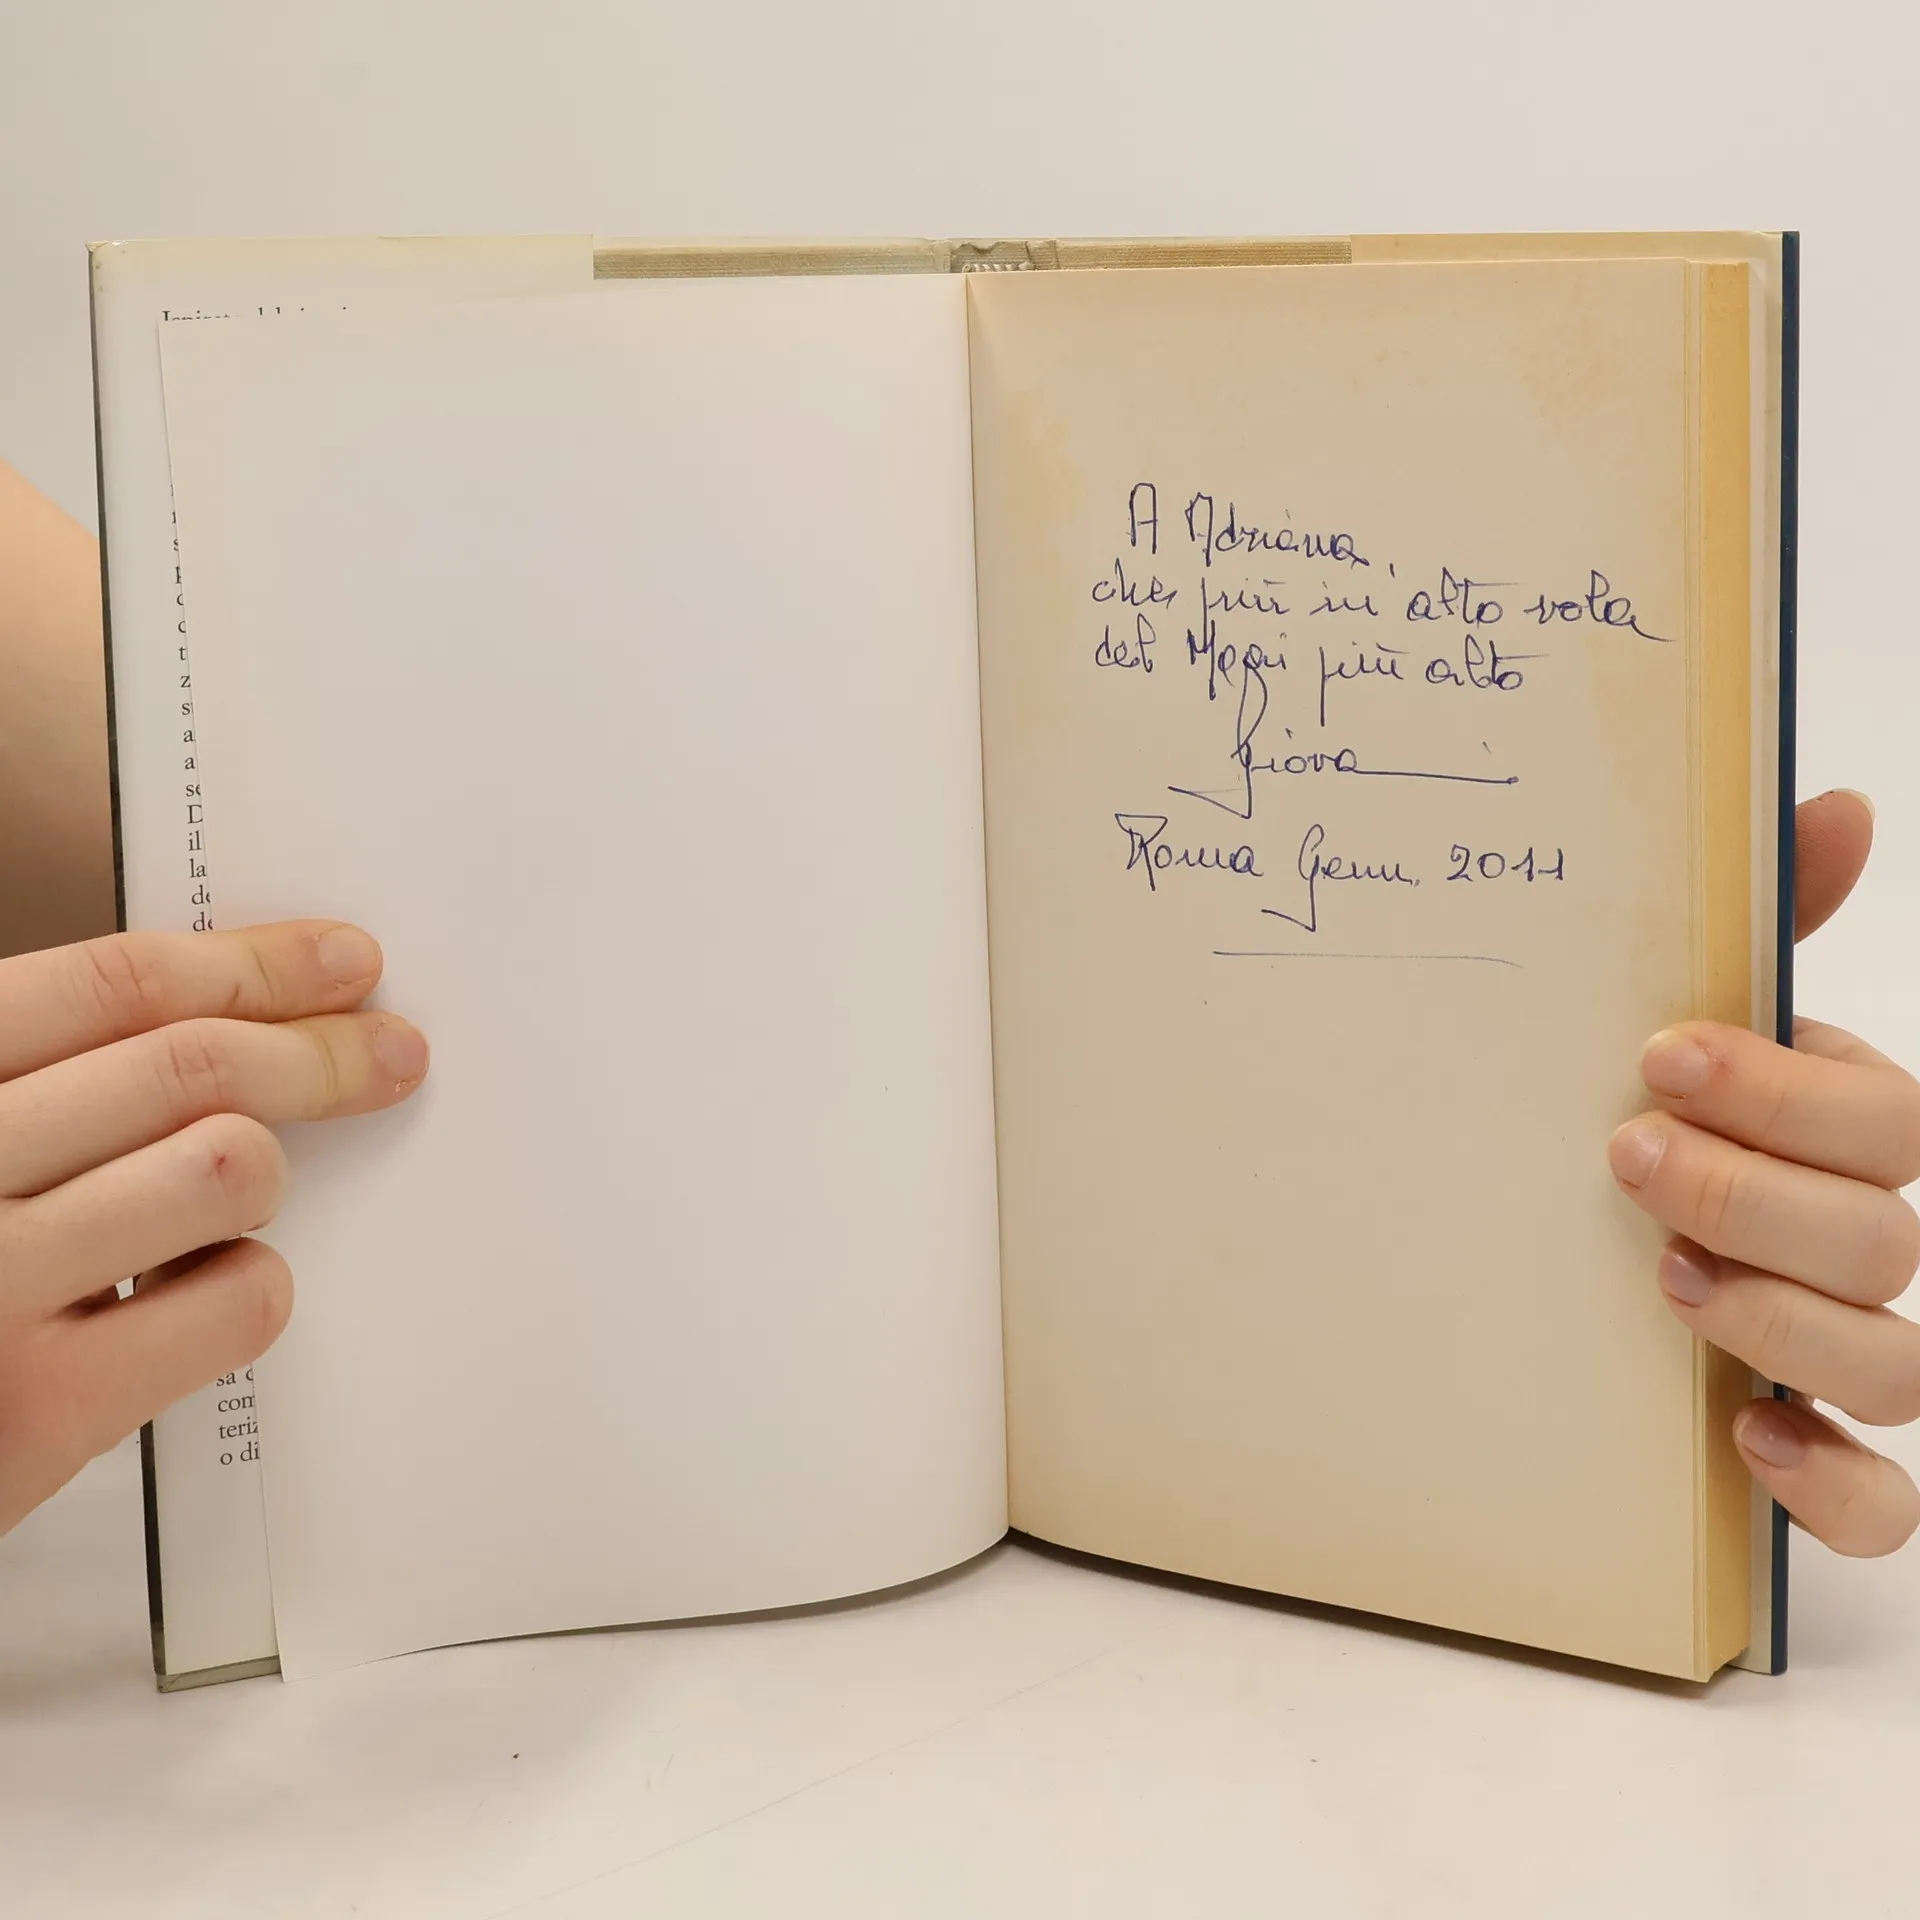 A Adriana,
che più in alto vola
del Megi più alto
Giovanni
Roma Genn. 2011
z
a
a
se
D
il
la
de
de
sa c
com
teriz
o di